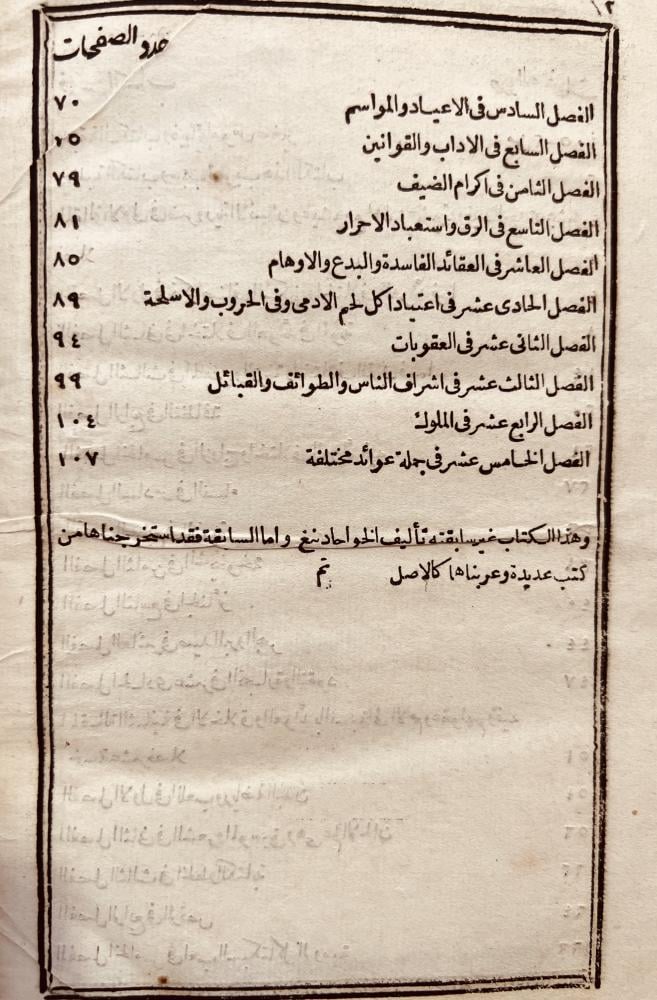 عدد الصفحات
الفصل السادس فى الاعياد والمواسم ٧٠
الفصل السابع فى الاداب والقوانين ٧٥
الفصل الثامن فى اكرام الضيف ٧٩
الفصل التاسع فى الرق واستعباد الاحرار ٨١
الفصل العاشر فى العقائد الفاسدة والبدع والاوهام ٨٥
الفصل الحادى عشر فى اعتياد اكل لحم الادمى وفى الحروب والاسلحة ٨٩
الفصل الثانى عشر فى العقوبات ٩٤
الفصل الثالث عشر فى اشراف الناس والطوائف والقبائل ٩٩
الفصل الرابع عشر فى الملوك ١٠٤
الفصل الخامس عشر فى جملة عوائد مختلفة ١٠٧
وهذا الكتاب غير سابقته تأليف الخواجا دنبغ واما السابقة فقد استخرجناها من
كتب عديدة وعربناها كالاصل تم